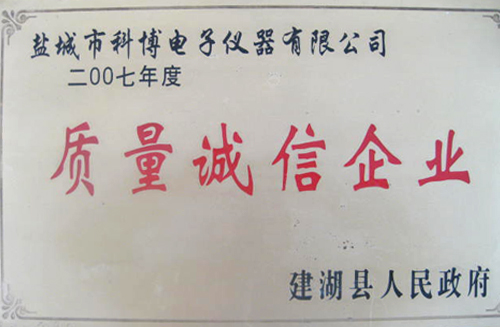 盐城市科博电子仪器有限公司
二00七年度
质量诚信企业
建湖县人民政府